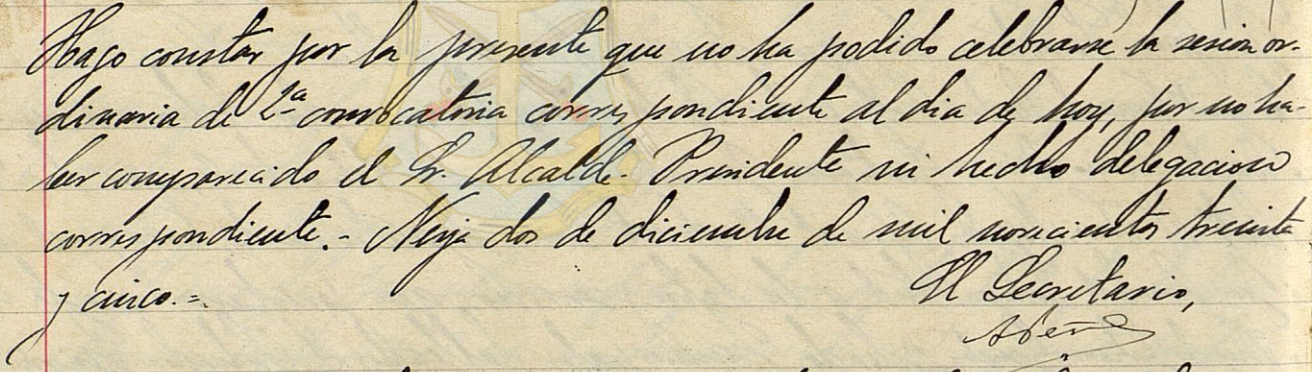 Hago constar por la presente que no ha podido celebrarse la sesión or-
dinaria de 2ª convocatoria correspondiente al dia de hoy, por no ha-
ber comparecido el Sr. Alcalde-Presidente ni hecho delegacion
correspondiente.- Nerja dos de diciembre de mil novecientos treinta
y cinco.=
El Secretario,